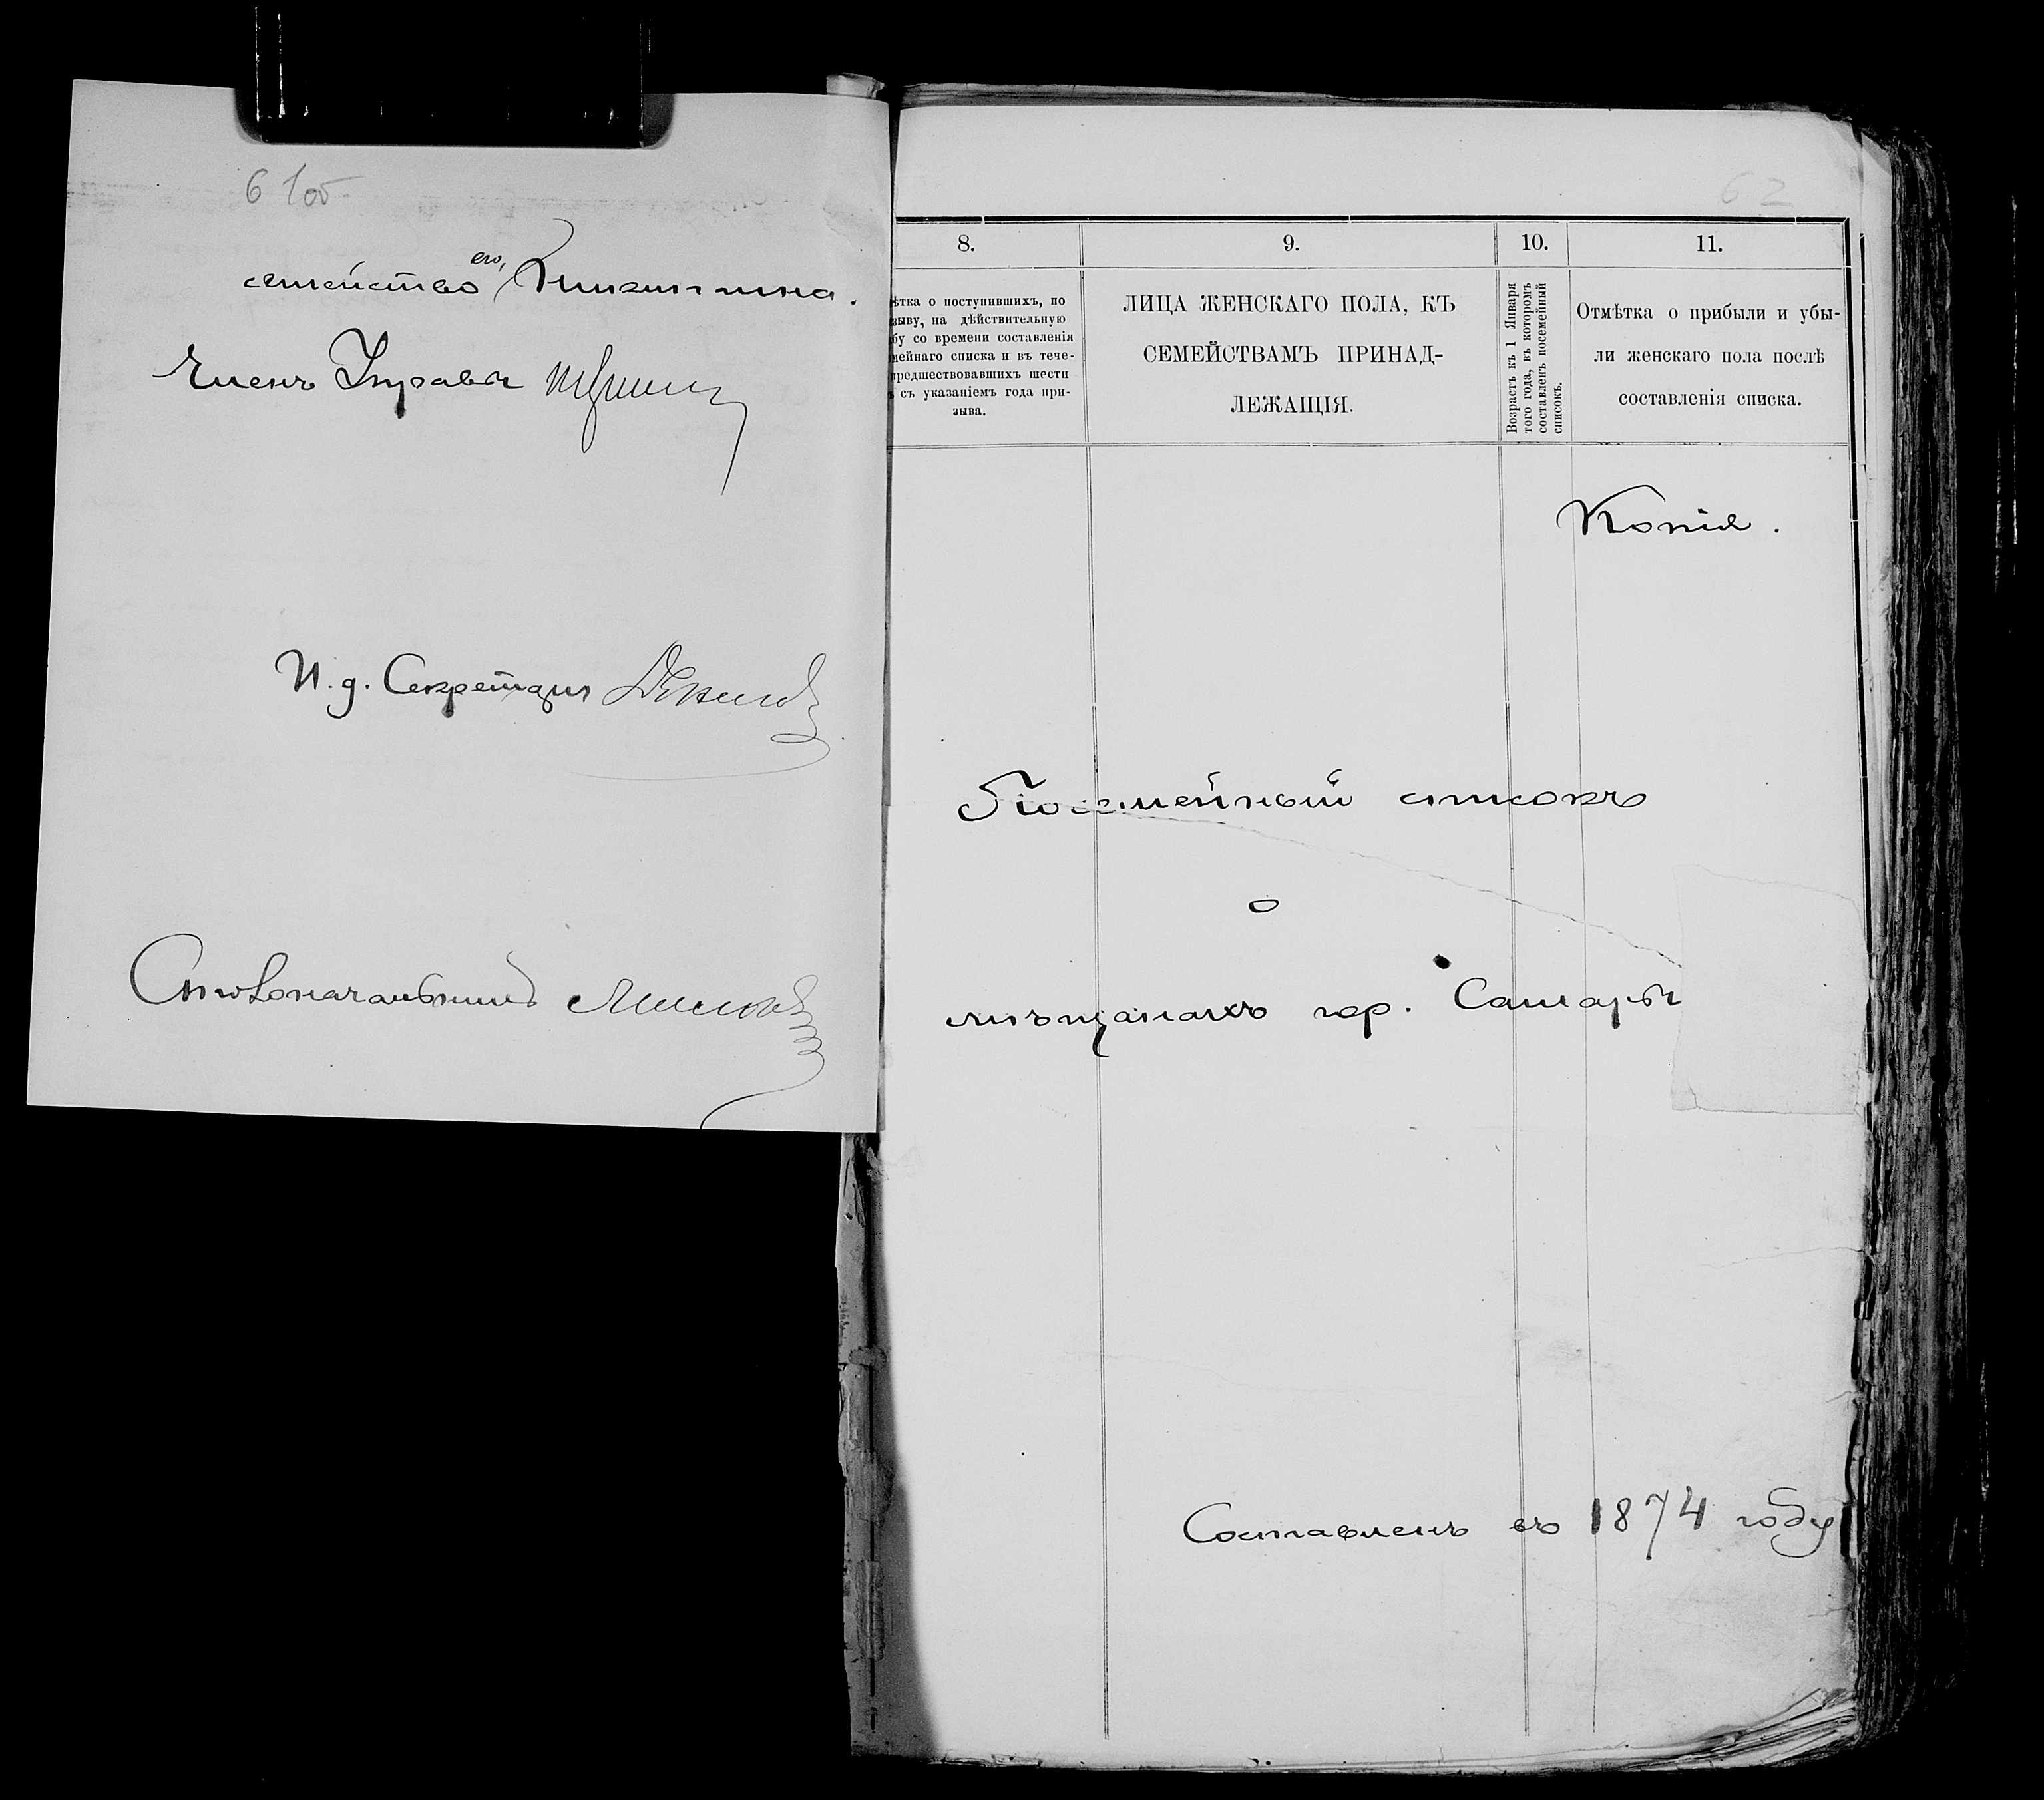 61 об
семейство его,
Членъ Управы
И. д. Секретаря
Столоначальникъ
62
8.
9.
10.
11.
ѣтка о поступившихъ, по
зыву, на дѣйствительную
бу со времени составленія
мейнаго списка и въ тече-
предшествовавшихъ шести
ъ съ указаніемъ года при-
зыва.
ЛИЦА ЖЕНСКАГО ПОЛА, КЪ
СЕМЕЙСТВАМЪ ПРИНАД-
ЛЕЖАЩІЯ.
Возрастъ къ 1 Января
того года, въ которомъ
составленъ посемейный
списокъ.
Отмѣтка о прибыли и убы-
ли женскаго пола послѣ
составленія списка.
Копія.
Посемейный списокъ
о
мѣщанахъ гор. Самары
Составленъ въ 1874 году